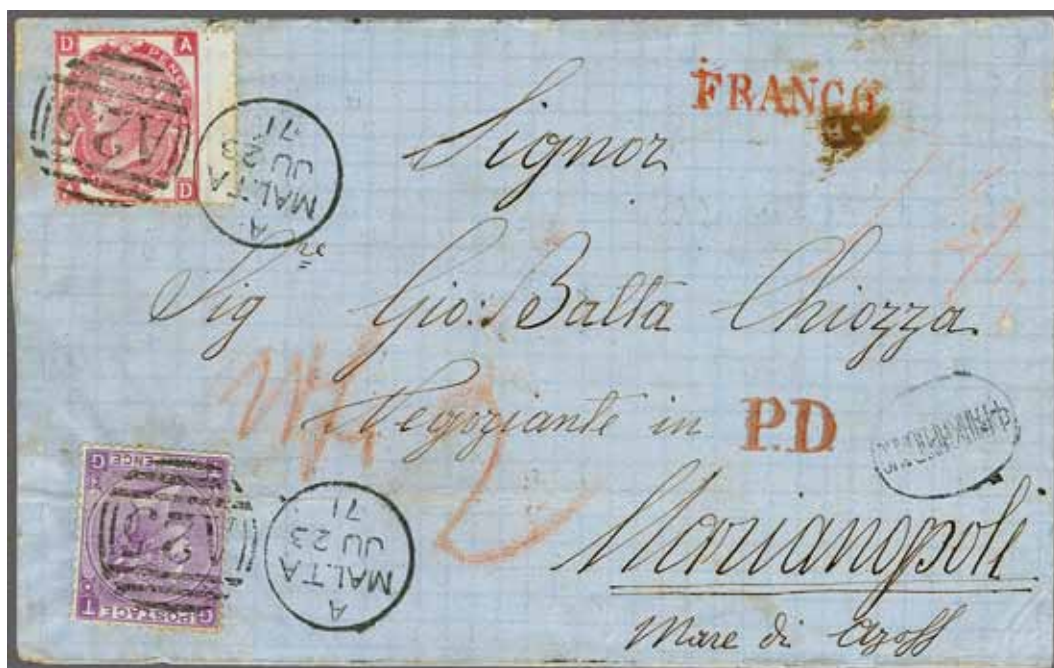 D A
PENCE
A25
A
MALTA
JU 23
71
FRANCO
Signor
Sig Gio: Batta Chiozza
Negoziante in
P.D
Marianopoli
Mare di Azoff
ENCE
G
A25
G POSTAGE T
A
MALTA
JU 23
71